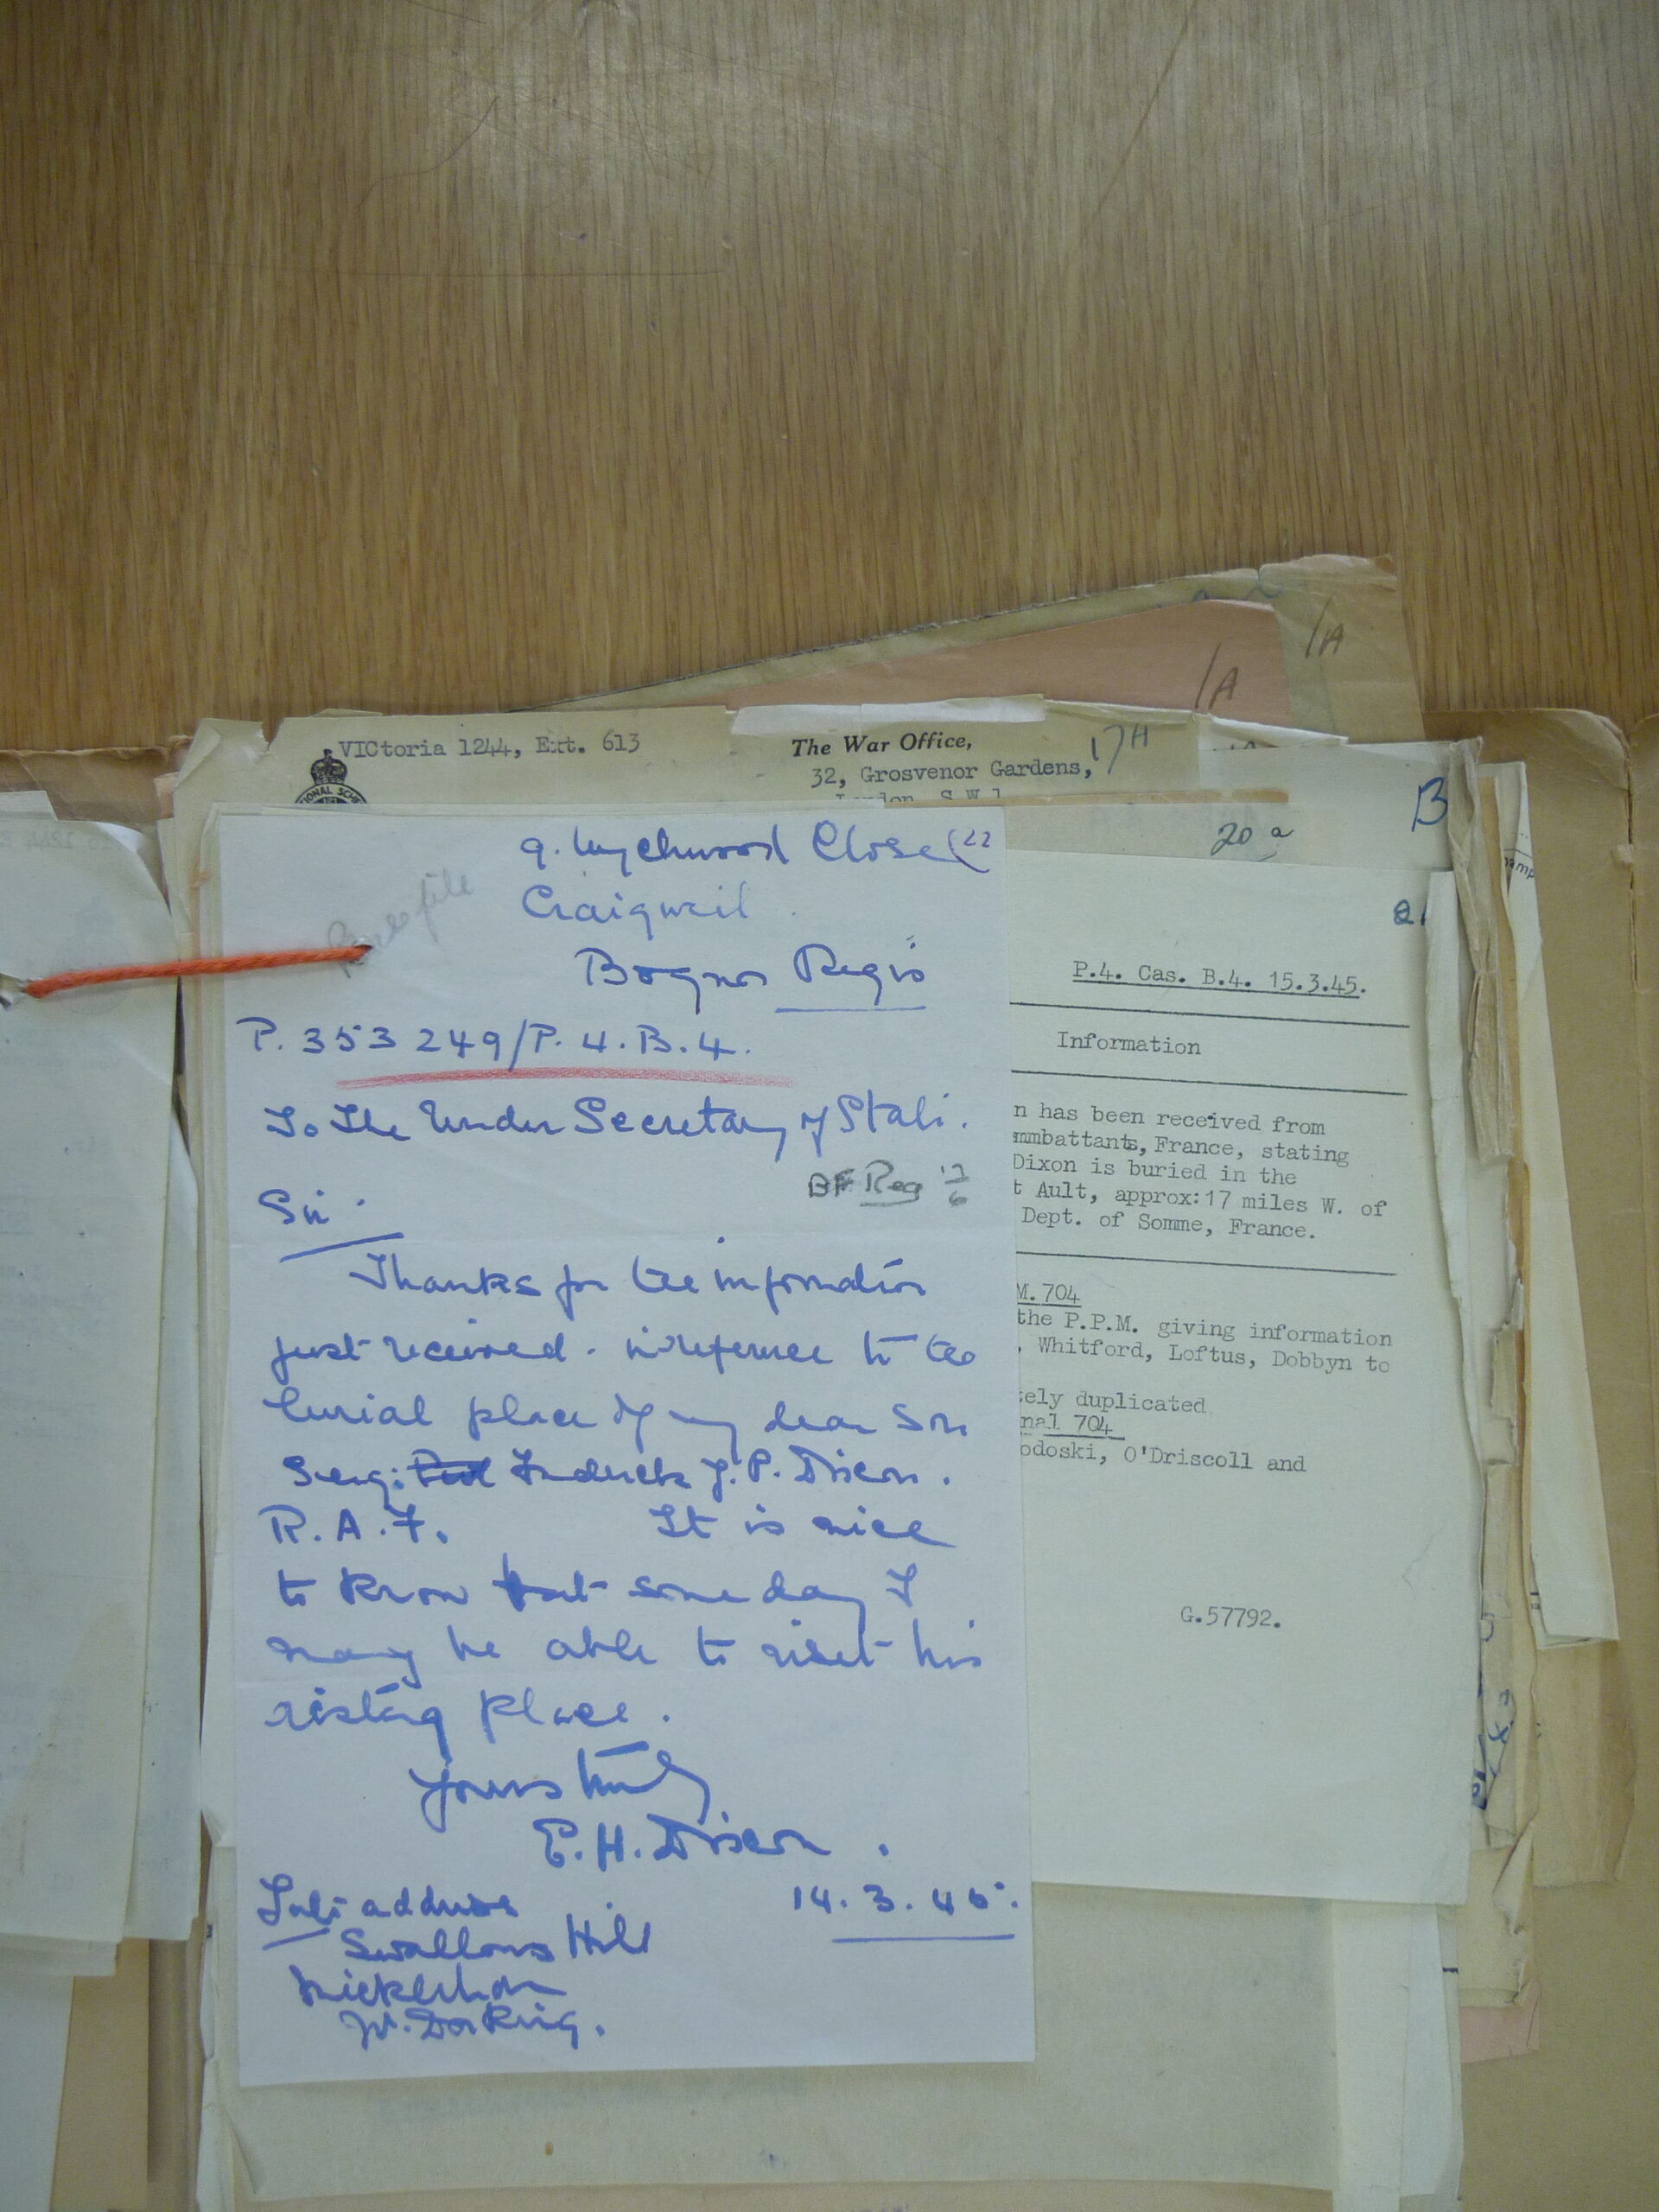 VICtoria 1244, Ext. 613
The War Office,
17A
32, Grosvenor Gardens,
London, S.W.1
1A
1A
B
20a
21
9. Wychwood Close (22
Craigweil
Bognor Regis
P. 353249/P.4.B.4.
To The Under Secretary of State.
BF Reg 17/6
Sir.
Thanks for the information
just received. in reference to the
burial place of my dear son
Serg: Frederick J. P. Dixon.
R.A.F. It is nice
to know that some day I
may be able to visit his
resting place.
Yours truly
E.H. Dixon.
14.3.45.
Late address
Swallows Hill
Mickleham
Nr. Dorking.
P.4. Cas. B.4. 15.3.45.
Information
n has been received from
ombattants, France, stating
Dixon is buried in the
t Ault, approx: 17 miles W. of
Dept. of Somme, France.
M.704
the P.P.M. giving information
, Whitford, Loftus, Dobbyn to
tely duplicated
nal 704
odoski, O'Driscoll and
G.57792.